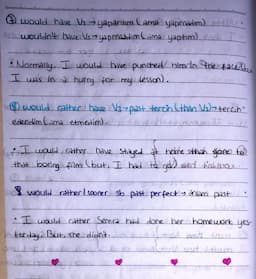 ② would have V₃ → yapardım (ama yapmadım)
wouldn't have V₃ → yapmazdım (ama yaptım)
• Normally, I would have punched him in the face but
I was in a hurry for my lesson.
would rather have V₃ → past tercih (than V₃) → tercih
ederdim (ama etmedim).
• I would rather have stayed at home than gone to
that boring film (but, I had to go)
would rather / sooner sb past perfect →  past
• I would rather Semra had done her homework yes
terday. But, she didn't.